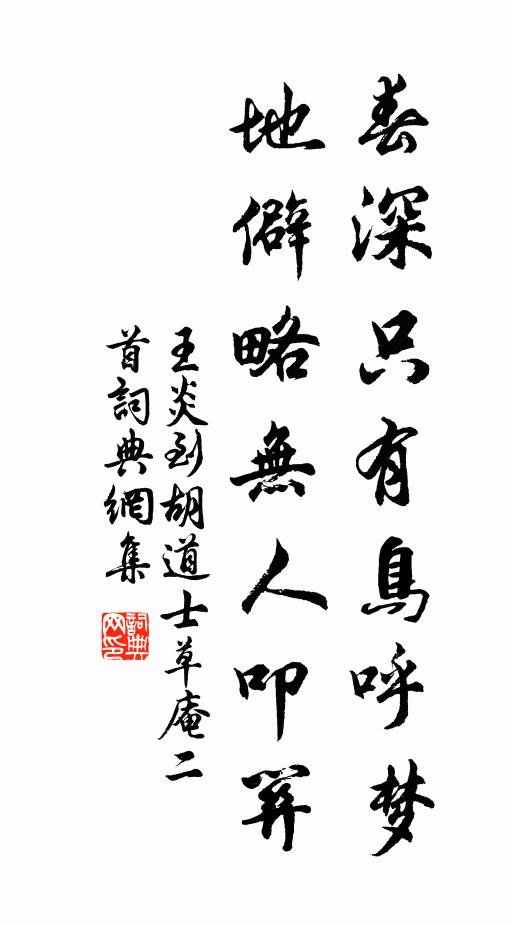 春深只有鳥呼梦
地僻略無人叩關
王炎到胡道士草庵二
首詞典網集
詞典
网印